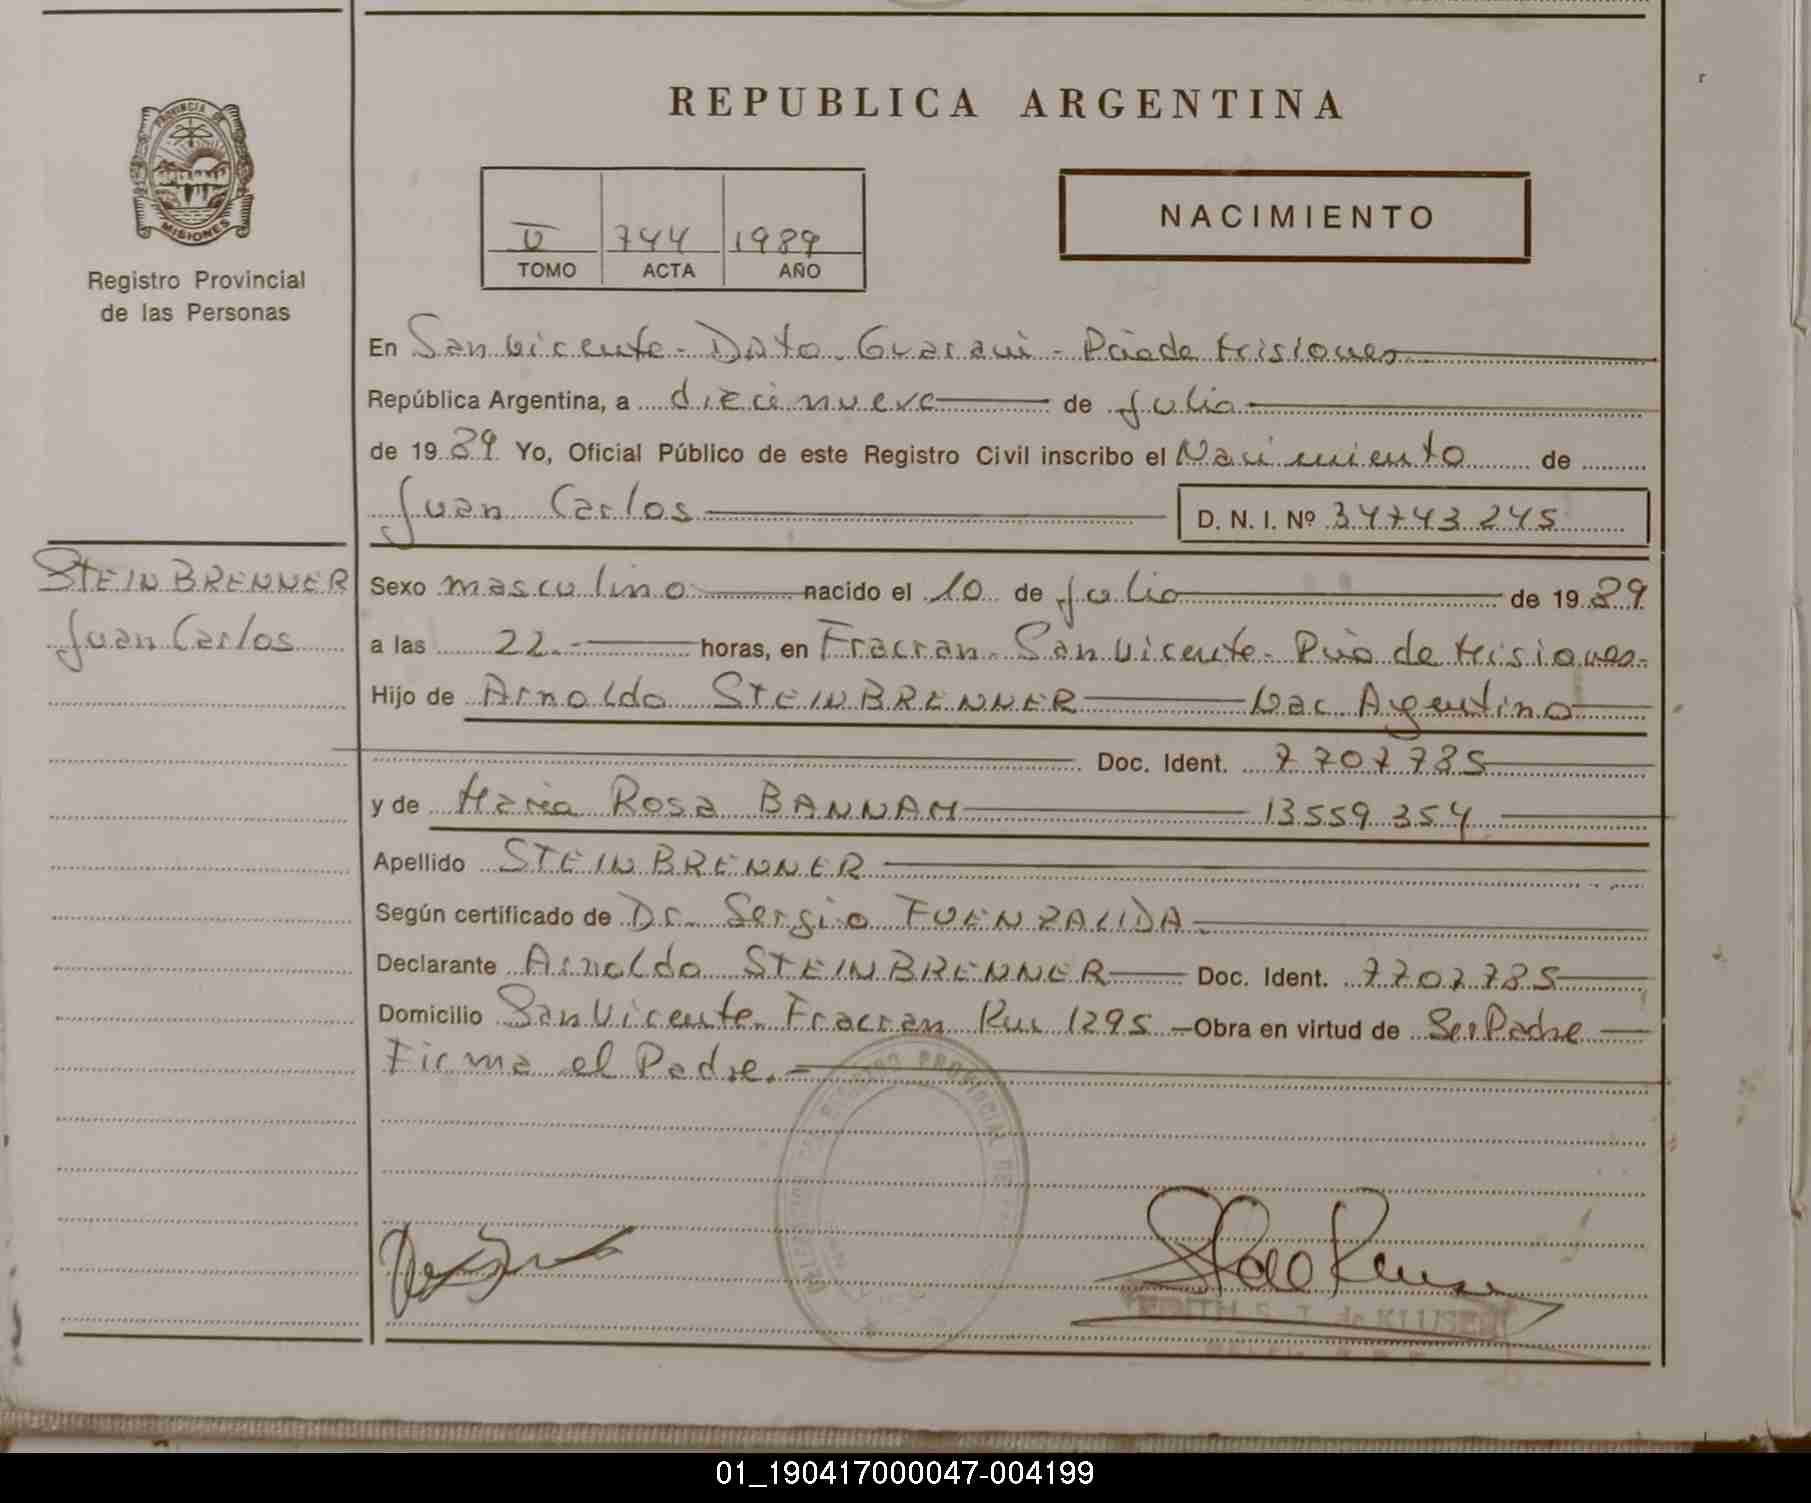 REPUBLICA ARGENTINA
PROVINCIA DE
MISIONES
Registro Provincial
de las Personas
V 744 1989
TOMO ACTA AÑO
NACIMIENTO
En San Vicente - Dpto. Guaraní - Pcia de Misiones
República Argentina, a diecinueve de Julio
de 1989 Yo, Oficial Público de este Registro Civil inscribo el Nacimiento de
Juan Carlos D. N. I. Nº 34743245
STEINBRENNER
Juan Carlos
Sexo masculino nacido el 10 de Julio de 1989
a las 22.- horas, en Fracran - San Vicente - Pcia de Misiones-
Hijo de Arnoldo STEINBRENNER Nac Argentino
Doc. Ident. 7707785
y de Maria Rosa BANNAM 13.559.354
Apellido STEINBRENNER
Según certificado de Dr. Sergio FUENZALIDA.
Declarante Arnoldo STEINBRENNER Doc. Ident. 7707785
Domicilio San Vicente Fracran Km 1295 - Obra en virtud de Ser Padre
Firma el Padre.-
REGISTRO PROVINCIAL DE
EDITH S. T. de KLUSE
01_190417000047-004199